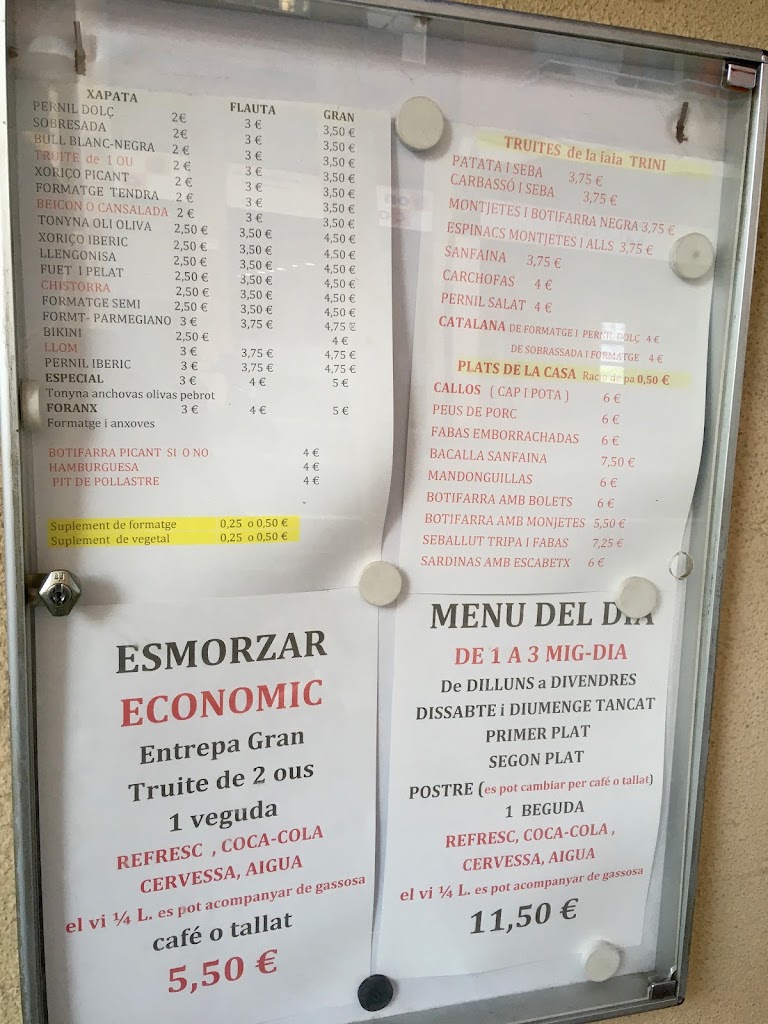 XAPATA FLAUTA GRAN
PERNIL DOLÇ 2€ 3 € 3,50 €
SOBRESADA 2€ 3 € 3,50 €
BULL BLANC-NEGRA 2 € 3 € 3,50 €
TRUITE de 1 OU 2 € 3 € 3,50 €
XORIÇO PICANT 2 € 3 € 3,50 €
FORMATGE TENDRA 2 € 3 € 3,50 €
BEICON O CANSALADA 2 € 3 € 3,50 €
TONYNA OLI OLIVA 2,50 € 3,50 € 4,50 €
XORIÇO IBERIC 2,50 € 3,50 € 4,50 €
LLENGONISA 2,50 € 3,50 € 4,50 €
FUET I PELAT 2,50 € 3,50 € 4,50 €
CHISTORRA 2,50 € 3,50 € 4,50 €
FORMATGE SEMI 2,50 € 3,50 € 4,50 €
FORMT- PARMEGIANO 3 € 3,75 € 4,75 €
BIKINI 2,50 € 4 €
LLOM 3 € 3,75 € 4,75 €
PERNIL IBERIC 3 € 3,75 € 4,75 €
ESPECIAL 3 € 4 € 5 €
Tonyna anchovas olivas pebrot
FORANX 3 € 4 € 5 €
Formatge i anxoves
BOTIFARRA PICANT SI O NO 4 €
HAMBURGUESA 4 €
PIT DE POLLASTRE 4 €
Suplement de formatge 0,25 o 0,50 €
Suplement de vegetal 0,25 o 0,50 €
TRUITES de la iaia TRINI
PATATA I SEBA 3,75 €
CARBASSÓ I SEBA 3,75 €
MONTJETES I BOTIFARRA NEGRA 3,75 €
ESPINACS MONTJETES I ALLS 3,75 €
SANFAINA 3,75 €
CARCHOFAS 4 €
PERNIL SALAT 4 €
CATALANA DE FORMATGE I PERNIL DOLÇ 4 €
DE SOBRASSADA I FORMATGE 4 €
PLATS DE LA CASA Racio de pa 0,50 €
CALLOS ( CAP I POTA ) 6 €
PEUS DE PORC 6 €
FABAS EMBORRACHADAS 6 €
BACALLA SANFAINA 7,50 €
MANDONGUILLAS 6 €
BOTIFARRA AMB BOLETS 6 €
BOTIFARRA AMB MONJETES 5,50 €
SEBALLUT TRIPA I FABAS 7,25 €
SARDINAS AMB ESCABETX 6 €
ESMORZAR
ECONOMIC
Entrepa Gran
Truite de 2 ous
1 veguda
REFRESC , COCA-COLA
CERVESSA, AIGUA
el vi ¼ L. es pot acompanyar de gassosa
café o tallat
5,50 €
MENU DEL DIA
DE 1 A 3 MIG-DIA
De DILLUNS a DIVENDRES
DISSABTE i DIUMENGE TANCAT
PRIMER PLAT
SEGON PLAT
POSTRE (es pot cambiar per café o tallat)
1 BEGUDA
REFRESC, COCA-COLA ,
CERVESSA, AIGUA
el vi ¼ L. es pot acompanyar de gassosa
11,50 €